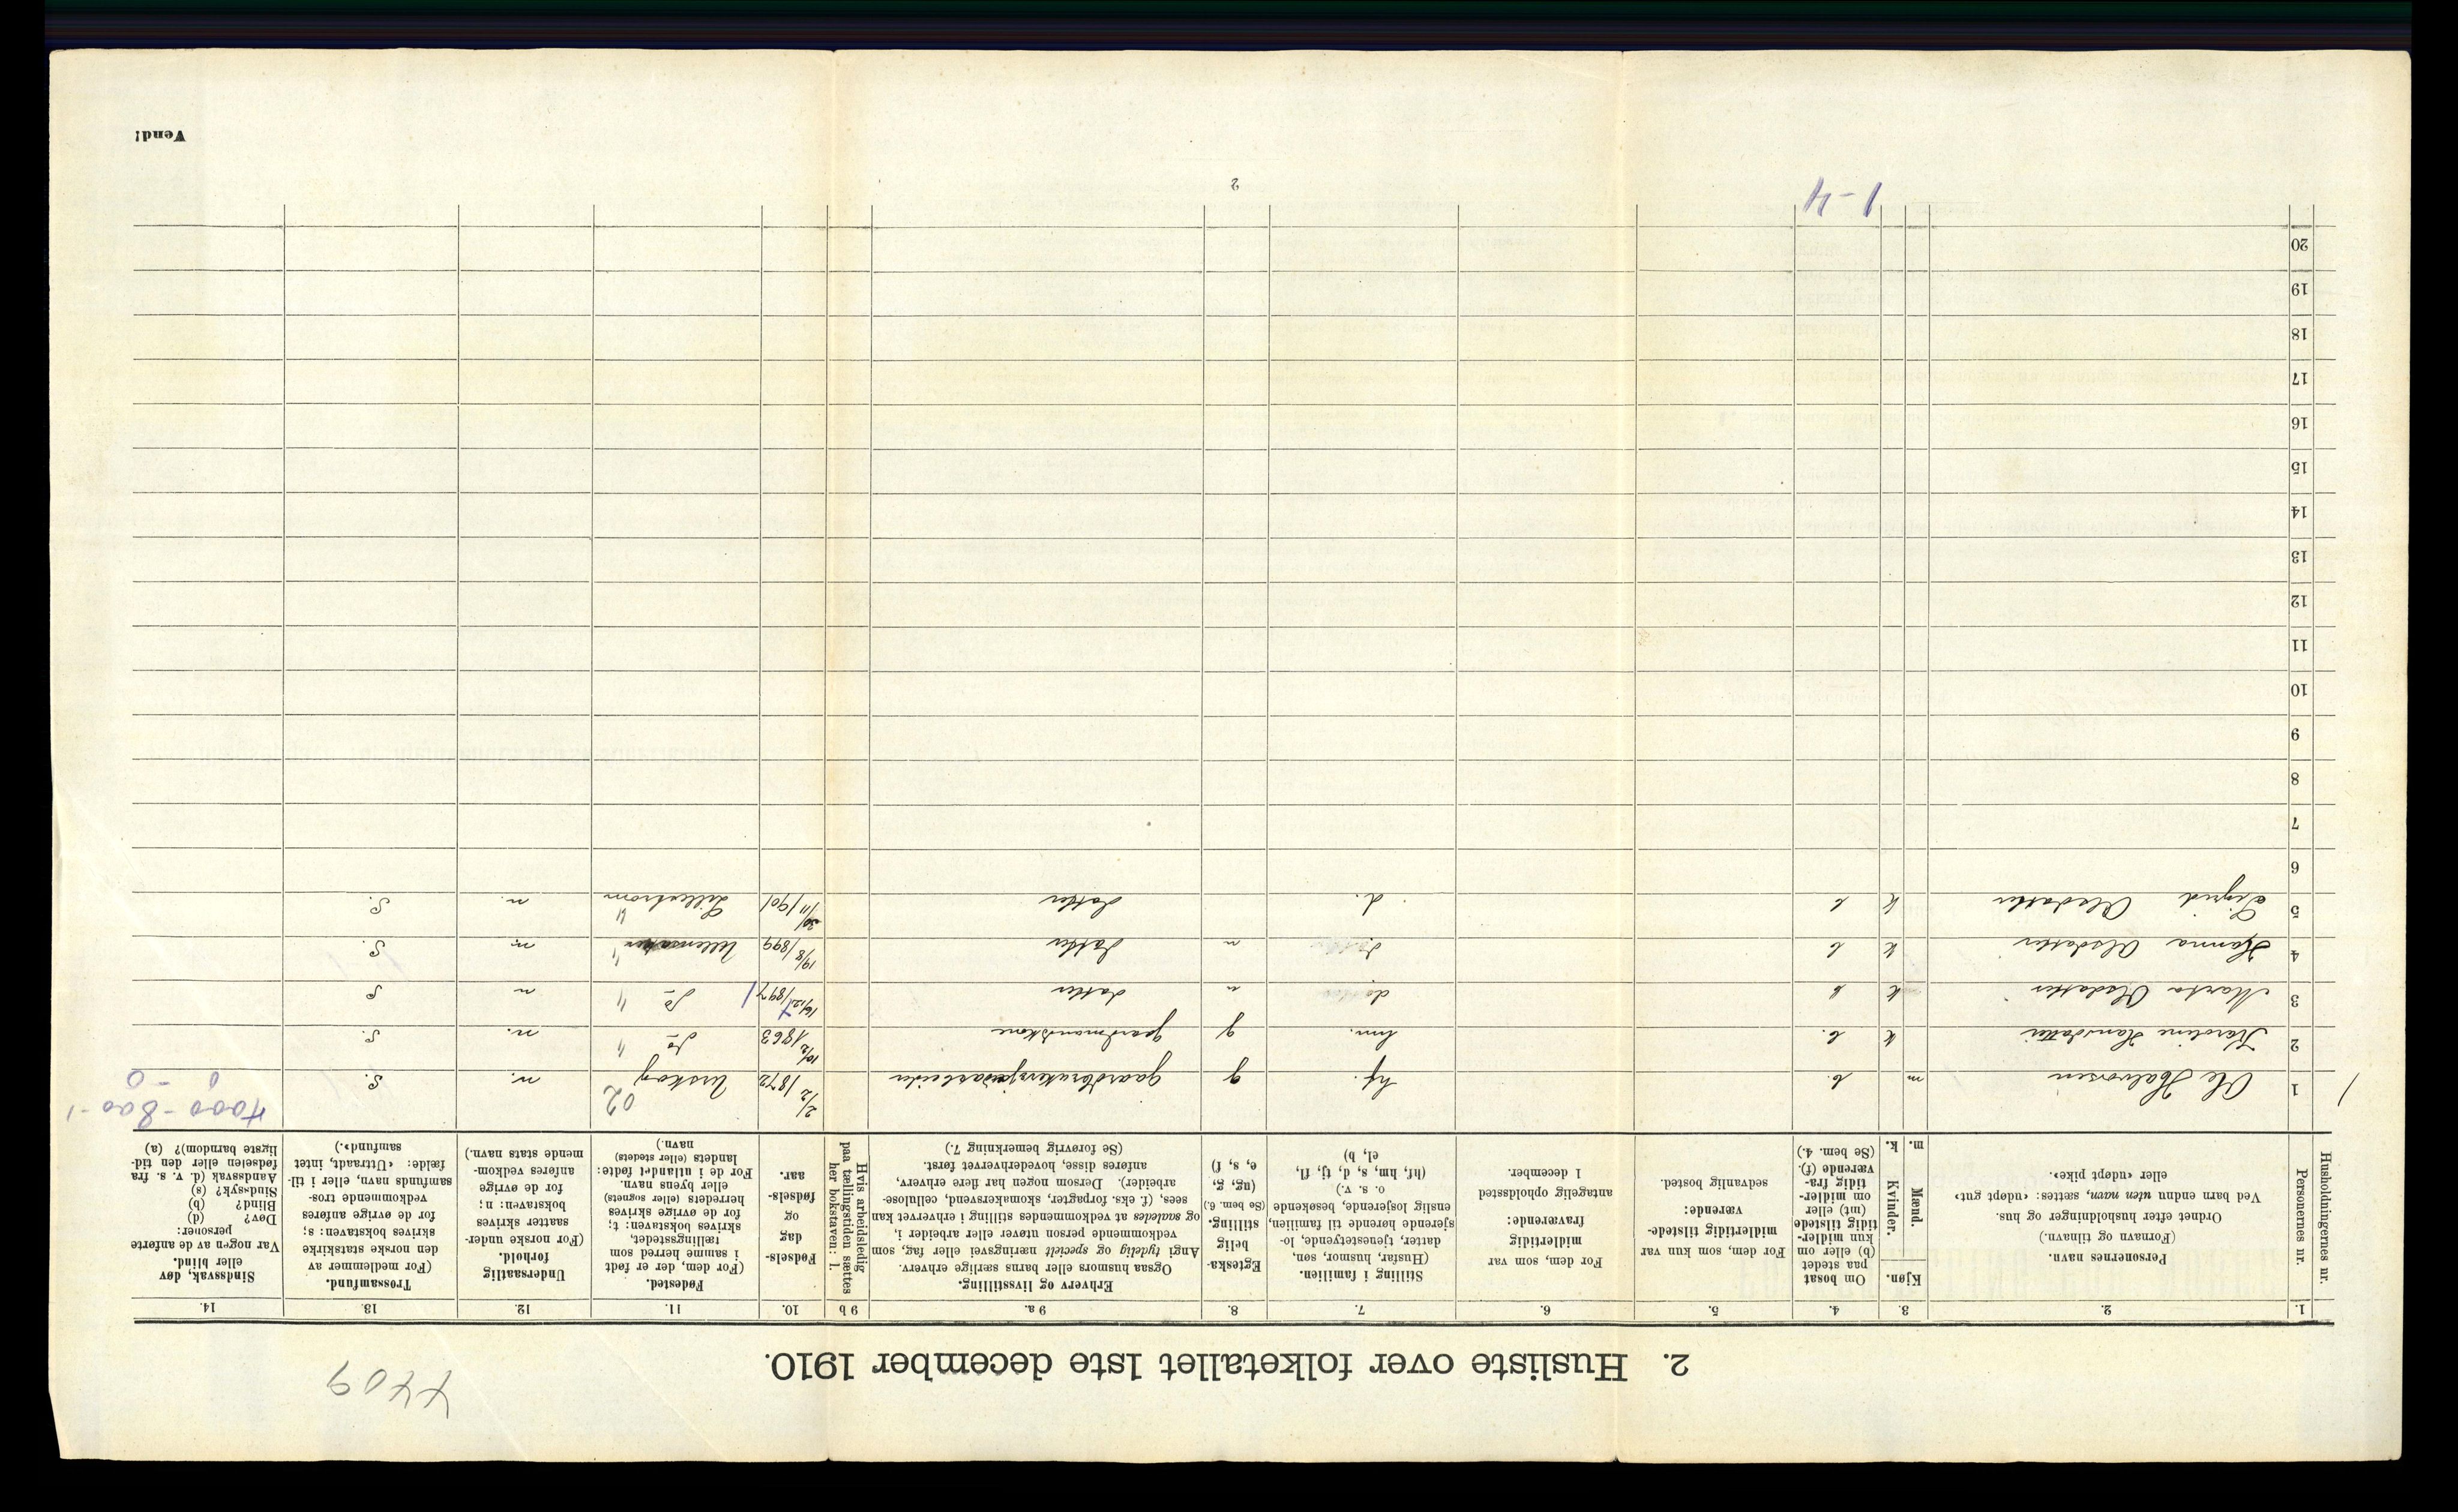 7709
2. Husliste over folketallet 1ste december 1910.
1. 2. 3. 4. 5. 6. 7. 8. 9 a. 9 b 10. 11. 12. 13. 14.
Husholdningernes nr.
Personernes nr.
Personernes navn.
(Fornavn og tilnavn.)
Ordnet efter husholdninger og hus.
Ved barn endnu uten navn, sættes: «udøpt gut»
eller «udøpt pike».
Kjøn.
Mænd.
Kvinder.
m. k.
Om bosat
paa stedet
(b) eller om
kun midler-
tidig tilstede
(mt) eller
om midler-
tidig fra-
værende (f).
(Se bem. 4.)
For dem, som kun var
midlertidig tilstede-
værende:
sedvanlig bosted.
For dem, som var
midlertidig
fraværende:
antagelig opholdssted
1 december.
Stilling i familien.
(Husfar, husmor, søn,
datter, tjenestetyende, lo-
sjerende hørende til familien,
enslig losjerende, besøkende
o. s. v.)
(hf, hm, s, d, tj, fl,
el, b)
Egteska-
belig
stilling.
(Se bem. 6.)
(ug, g,
e, s, f)
Erhverv og livsstilling.
Ogsaa husmors eller barns særlige erhverv.
Angi tydelig og specielt næringsvei eller fag, som
vedkommende person utøver eller arbeider i,
og saaledes at vedkommendes stilling i erhvervet kan
sees, (f. eks. forpagter, skomakersvend, cellulose-
arbeider). Dersom nogen har flere erhverv,
anføres disse, hovederhvervet først.
(Se forøvrig bemerkning 7.)
Hvis arbeidsledig
paa tællingstiden sættes
her bokstaven: l.
Fødsels-
dag
og
fødsels-
aar.
Fødested.
(For dem, der er født
i samme herred som
tællingsstedet,
skrives bokstaven: t;
for de øvrige skrives
herredets (eller sognets)
eller byens navn.
For de i utlandet fødte:
landets (eller stedets)
navn.)
Undersaatlig
forhold.
(For norske under-
saatter skrives
bokstaven: n;
for de øvrige
anføres vedkom-
mende stats navn.)
Trossamfund.
(For medlemmer av
den norske statskirke
skrives bokstaven: s;
for de øvrige anføres
vedkommende tros-
samfunds navn, eller i til-
fælde: «Uttraadt, intet
samfund».)
Sindssvak, døv
eller blind.
Var nogen av de anførte
personer:
Døv? (d)
Blind? (b)
Sindssyk? (s)
Aandssvak (d. v. s. fra
fødselen eller den tid-
ligste barndom)? (a)
02 4000-800-1
1 1 Ole Halvorsen m b. hf. g gaardbruker 2/2 1872 Urskog n. S. 0 - 0
2 Karoline Hansdatter k b. hm. g gaardmandskone 10/2 1863 do n. S.
3 Marta Olsdatter k b d datter 16/12 1897 do n S
4 Hanna Olsdatter k b d datter 19/8 1899 Ullensaker n S.
5 Sigrid Olsdatter k b d. datter 30/11 1901 Lillestrøm n. S.
6
7
8
9
10
11
12
13
14
15
16
17
18
19
20
1-4
2
Vend!